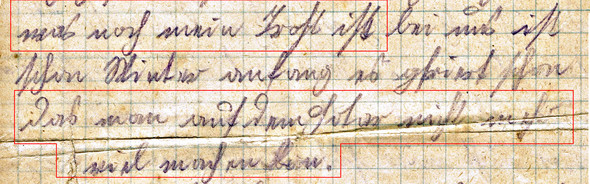 was noch mein Trost ist bei uns ist
schon Winter anfang es gfriert schon
das man auf dem nicht mehr
viel machen kan.